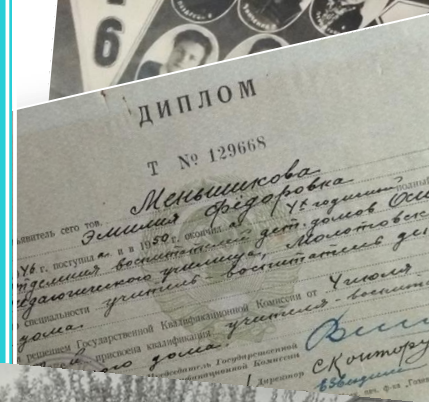 6
ДИПЛОМ
Т № 129668
Меньшикова
явитель сего тов. Эмилия Фёдоровна
46 г. поступила и в 1950 г. окончила 4х годичный полный
отделения воспитателей дет. домов
педагогического училища, Молотовск
по специальности учитель-воспитатель де
дома.
решением Государственной Квалификационной Комиссии от 4 июля
присвоена квалификация учителя-воспита
дома.
Председатель Государственной
Комиссии
Директор